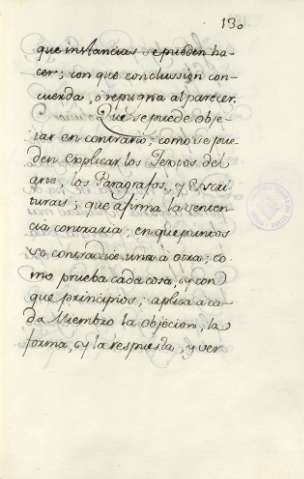 130
que instancias se pueden ha-
cer; con que conclussion con-
cuerda, o repugna al parecer.
Que se puede obje-
tar en contrario; como se pue-
den explicar los Textos del
arte, los Paragrafos, y Escri-
turas; que afirma la senten-
cia contraria; en que puntos
se contradice una a otra; co-
mo prueba cada cosa, y con
que principios; aplica a ca-
da Miembro la objecion, la
forma, y la respuesta, y ver